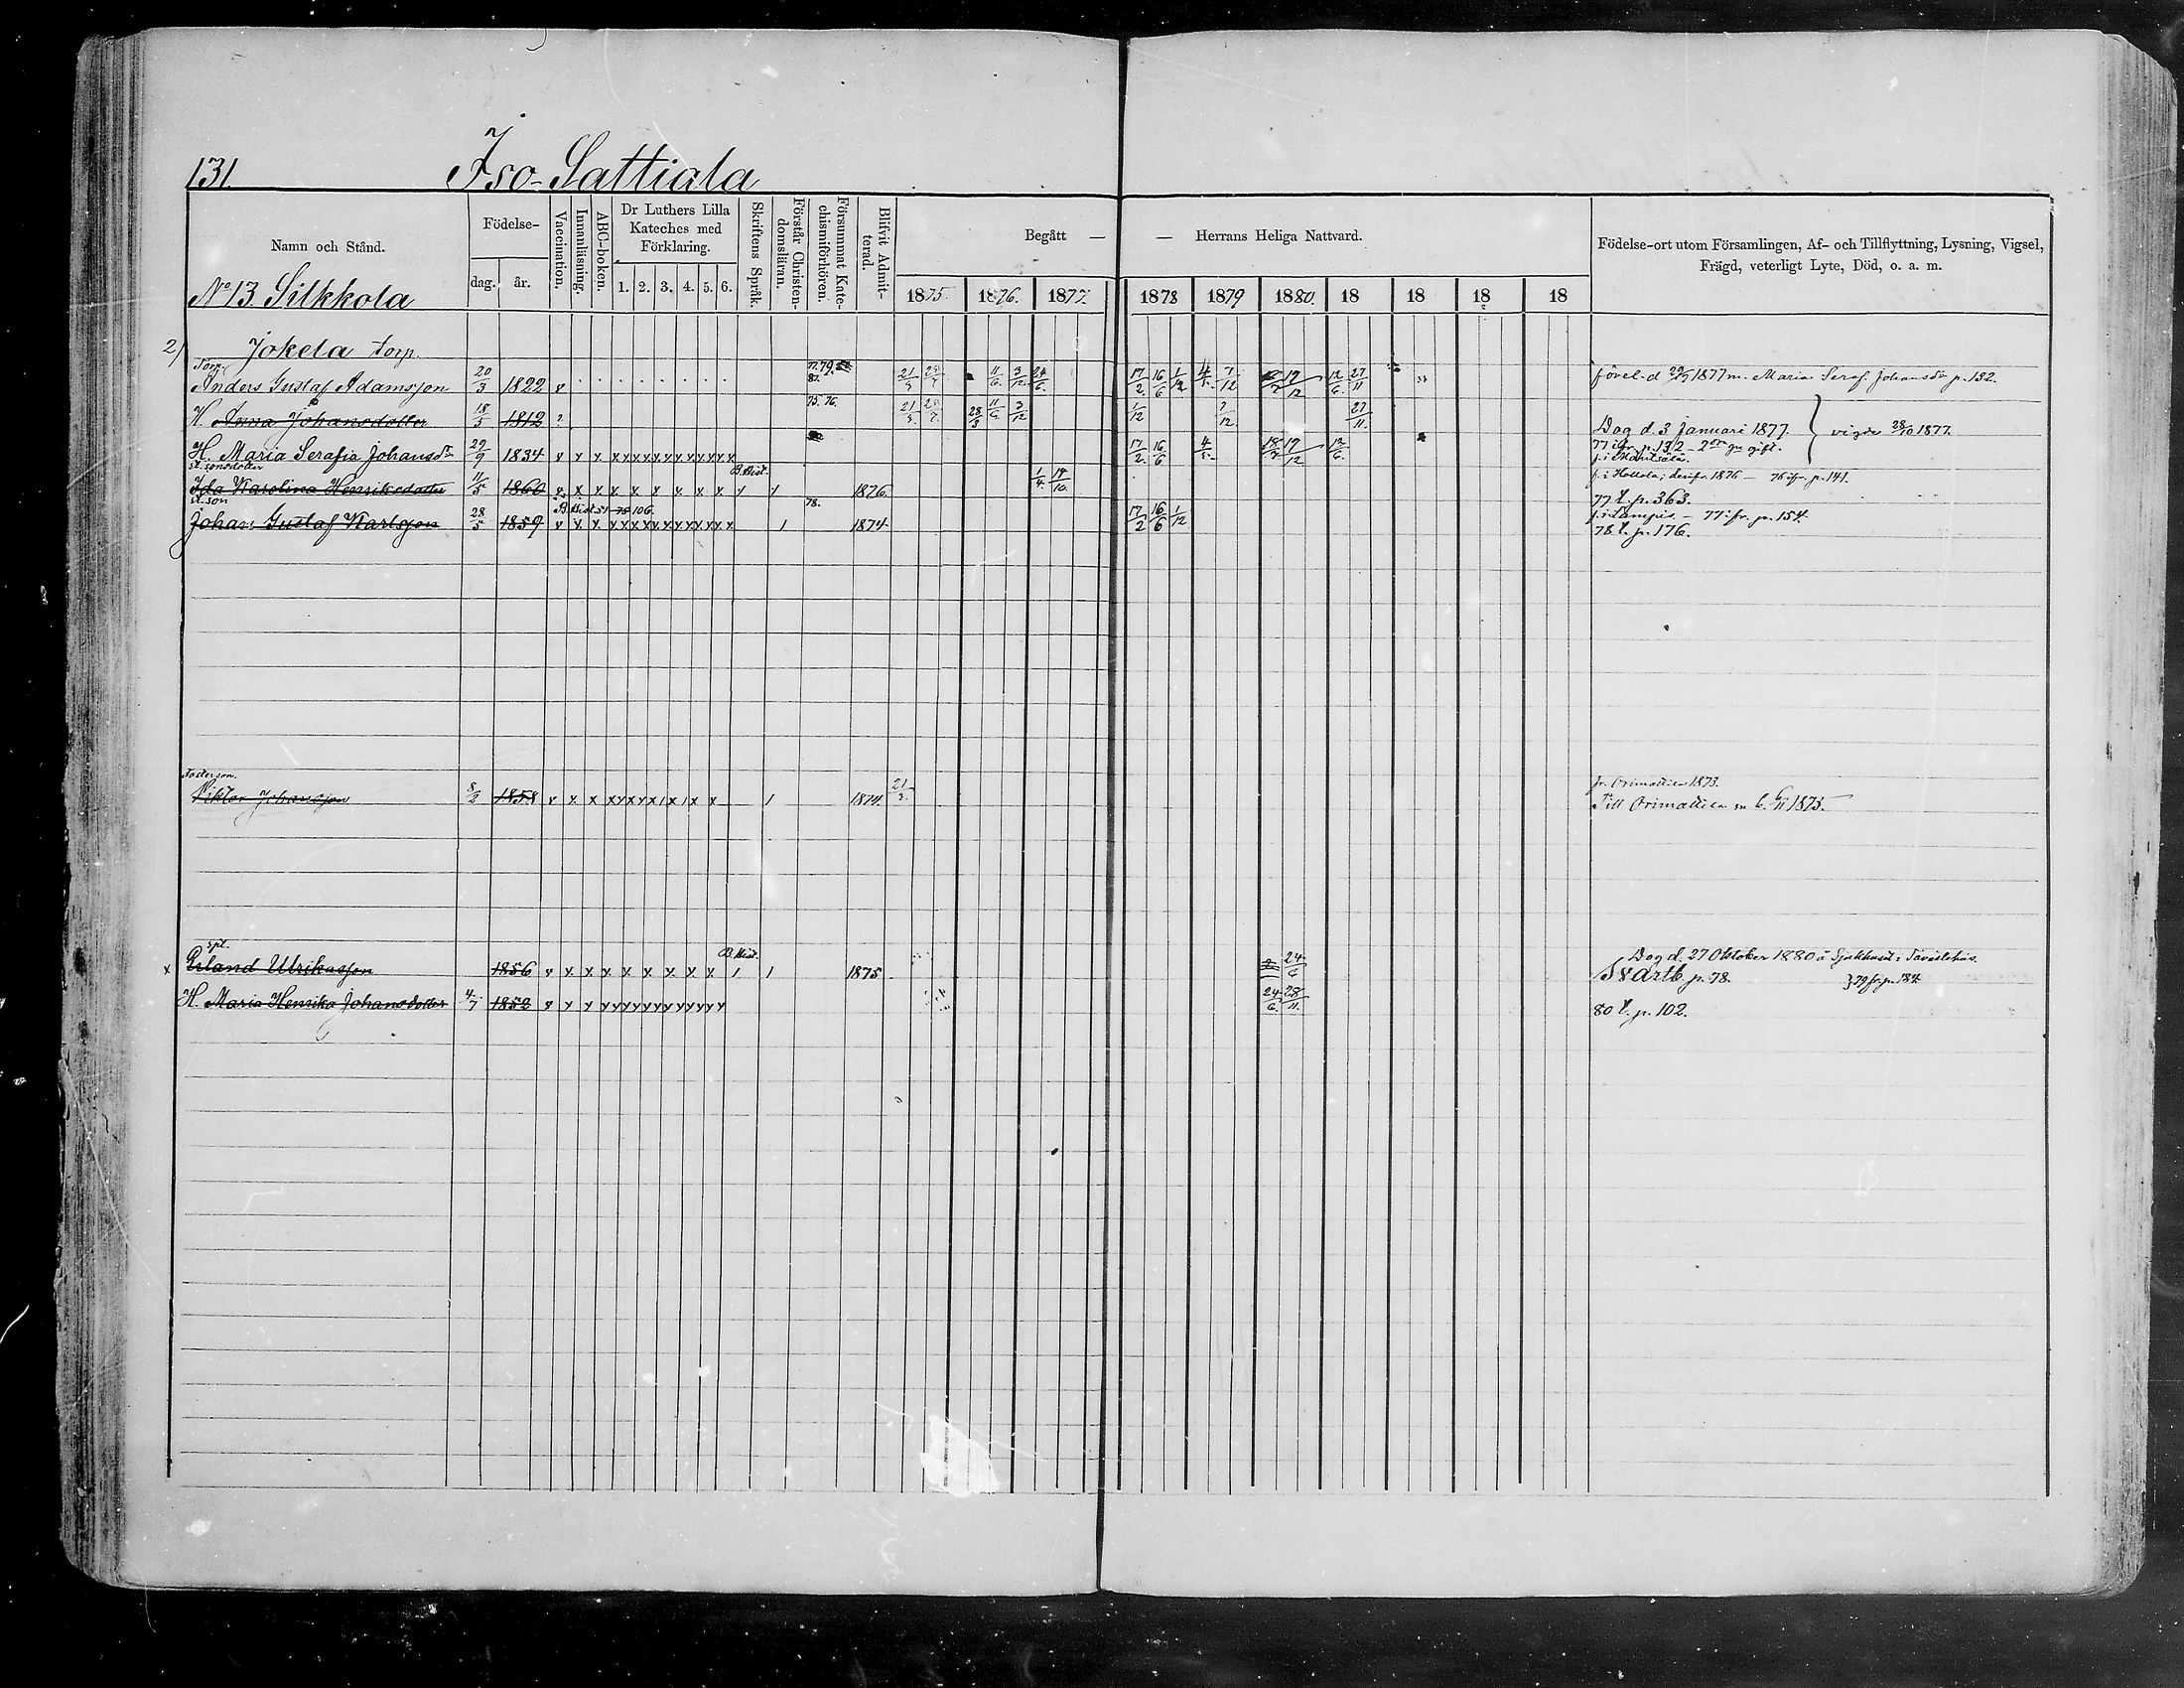 131.
Iso-Sattiala
Namn och Stånd.
Födelse-
dag.
år.
Vaccination.
Innanläsning.
ABC-boken.
Dr Luthers Lilla
Kateches med
Förklaring.
1. 2. 3. 4. 5. 6.
Skriftens Språk.
Förstår Christen-
domsläran.
Försummat Kate-
chismiförhören.
Blifvit Admit-
terad.
Begått — — Herrans Heliga Nattvard.
1875. 1876. 1877. 1878 1879 1880. 18 18 18 18
Födelse-ort utom Församlingen, Af- och Tillflyttning, Lysning, Vigsel,
Frägd, veterligt Lyte, Död, o. a. m.
No 13. Silkkola
2) Jokela torp.
Torp.
Anders Gustaf Adamsson 20/3 1822 v 77. 79. 21/3 11/6 3/12 24/6 17/2 16/6 1/12 7/12 12/6 27/11 1877 m. Maria Seraf. Johansdr p. 132.
H. Anna Johansdotter 18/5 1812 ? 75. 76. 21/3 28/3 11/6 3/12 1/12 7/12 27/11 Dog d. 3 Januari 1877. vigde 28/10 1877.
H. Maria Serafia Johansdr 29/9 1834 v x x xxxxxxxxxxxx 17/2 16/6 12/6 77 ifr. p. 132 - 2dra ggn gift.
st. sonsdotter
Ida Karolina Henriksdotter 11/5 1860 v x x x x x x x x B. Hist. 1876. 1/4 14/10 f. i Hollola; derifr. 1876 — 76 ifr. p. 141.
77 t. p. 363.
st. son
Johan Gustaf Karlsson 28/5 1859 v x x xxxxxxxxxxxx B. Hist. 51 78 106. 1 78. 1874 17/2 16/6 1/12 — 77 ifr. p. 154.
78 t. p. 176.
Foderson.
Viktor Johansson 8/2 1858 v x x 1 1874. 21/3 fr. Orimattila 1873.
Till Orimattila 6/11 1875.
spl.
x Erland Ulrikasson 1856 v x x x x x x x x B. Hist. 1 1 1875 24/6 Dog d. 27 Oktober 1880 å Sjukhuset i Tavastehus.
p. 78. 79 fr. p. 184.
H. Maria Henrika Johansdotter 4/7 1852 v x x xxxxxxxxxxx 24/6 28/11 80 t. p. 102.